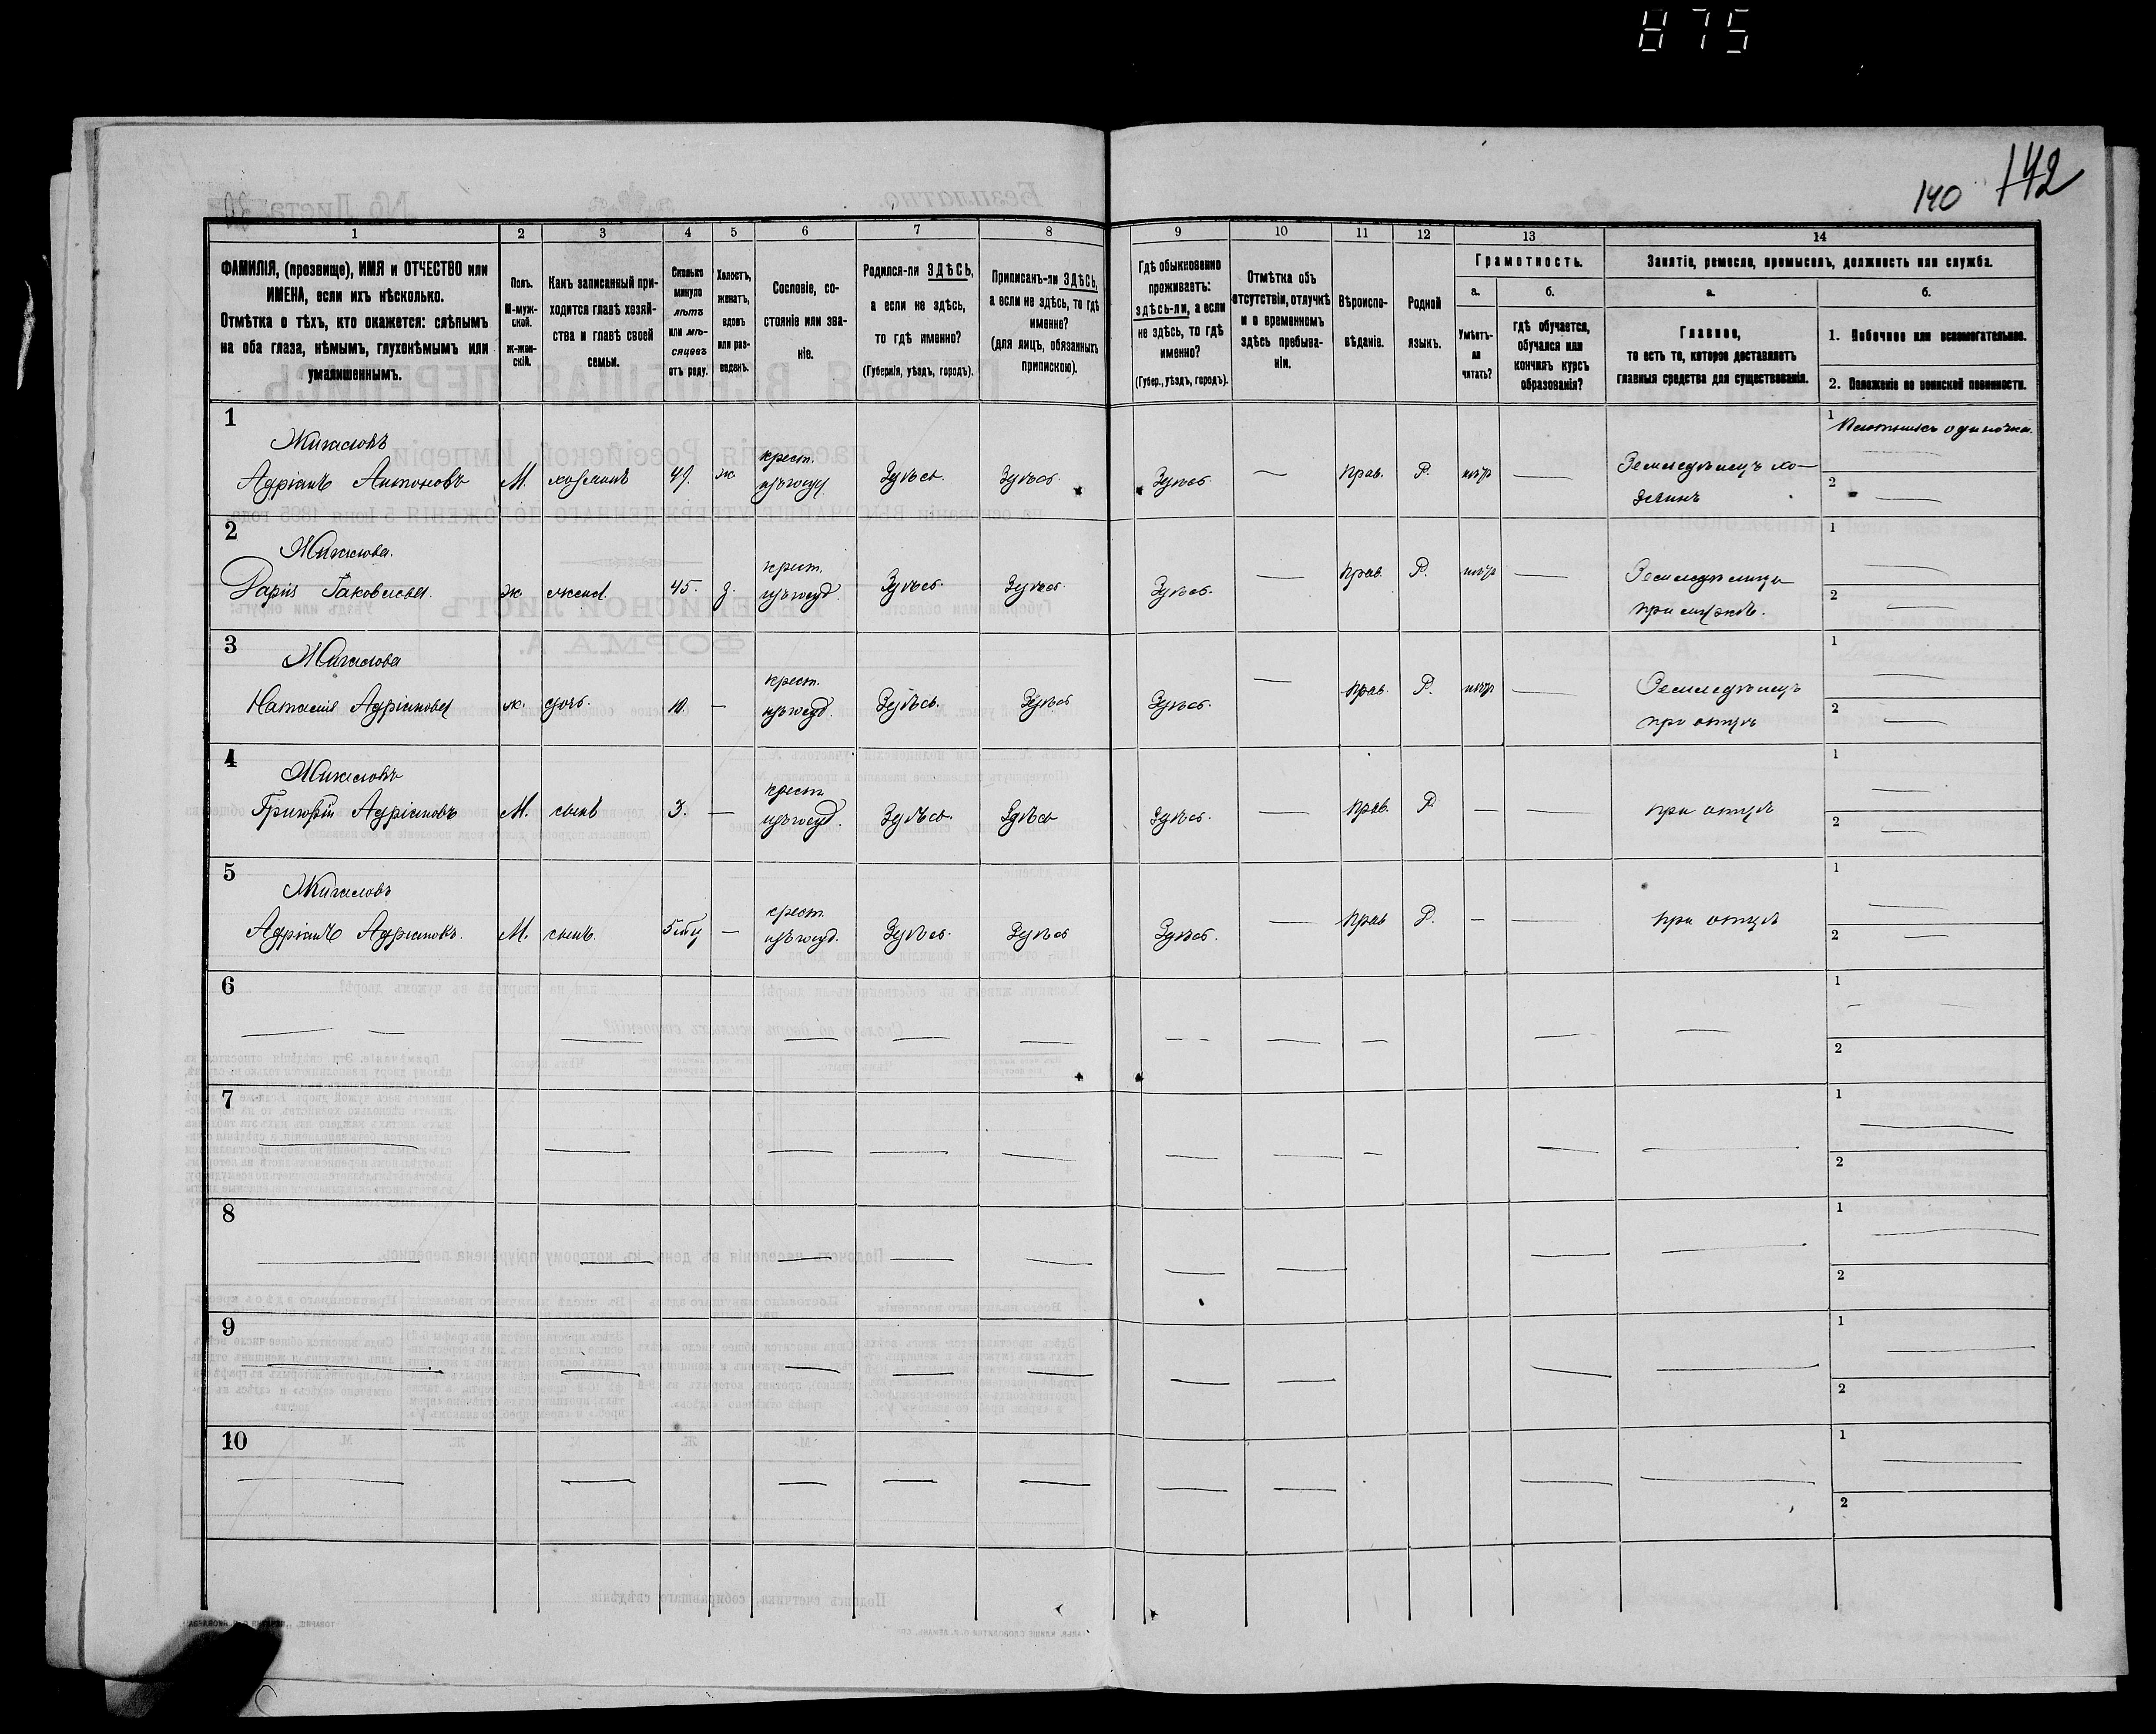 875
140 142
1 2 3 4 5 6 7 8 9 10 11 12 13 14
ФАМИЛІЯ, (прозвище), ИМЯ и ОТЧЕСТВО или
ИМЕНА, если ихъ нѣсколько.
Отмѣтка о тѣхъ, кто окажется: слѣпымъ
на оба глаза, нѣмымъ, глухонѣмымъ или
умалишеннымъ.
Полъ.
М-муж-
ской.
ж-жен-
скій.
Какъ записанный при-
ходится главѣ хозяй-
ства и главѣ своей
семьи.
Сколько
минуло
лѣтъ
или мѣ-
сяцевъ
отъ роду.
Холостъ,
женатъ,
вдовъ
или раз-
веденъ.
Сословіе, со-
стояніе или зва-
ніе.
Родился-ли ЗДѢСЬ,
а если не здѣсь,
то гдѣ именно?
(Губернія, уѣздъ, городъ).
Приписанъ-ли ЗДѢСЬ,
а если не здѣсь, то гдѣ
именно?
(для лицъ, обязанныхъ
припискою).
Гдѣ обыкновенно
проживаетъ:
здѣсь-ли, а если
не здѣсь, то гдѣ
именно?
(Губер., уѣздъ, городъ).
Отмѣтка объ
отсутствіи, отлучкѣ
и о временномъ
здѣсь пребыва-
ніи.
Вѣроиспо-
вѣданіе.
Родной
языкъ.
Грамотность.
а.
Умѣетъ-
ли
читать?
б.
гдѣ обучается,
обучался или
кончилъ курсъ
образованія?
Занятіе, ремесло, промыселъ, должность или служба.
а.
Главное,
то есть то, которое доставляетъ
главныя средства для существованія.
б.
1. Побочное или вспомогательное.
2. Положеніе по воинской повинности.
1
Жигаловъ
Адріанъ Антоновъ М. хозяинъ 49. ж крест. Здѣсь Здѣсь Здѣсь — Прав. Р. —
Земледѣлецъ хо-
зяинъ
1 Плотникъ одиночка.
2 —
2
Жигалова.
Дарія Іаковлева ж. жена. 45. з. крест. Здѣсь Здѣсь Здѣсь — Прав. Р. —
при мужѣ.
1 —
2 —
3
Жигалова
Наталія Адріанова ж. дочь. 10. — крест. Здѣсь. Здѣсь Здѣсь. — Прав. Р. —
Земледѣлецъ
при отцѣ
1 —
2 —
4
Жигаловъ
Григорій Адріановъ М. сынъ 3. — крест. Здѣсь Здѣсь Здѣсь — Прав. Р. — — при отцѣ
1 —
2 —
5
Жигаловъ
Адріанъ Адріановъ. М. сынъ. — крест. Здѣсь Здѣсь Здѣсь. — Прав Р. — — при отцѣ
1 —
2 —
6
1 —
2
7
1 —
2
8
1 —
2
9
1 —
2
10
1 —
2